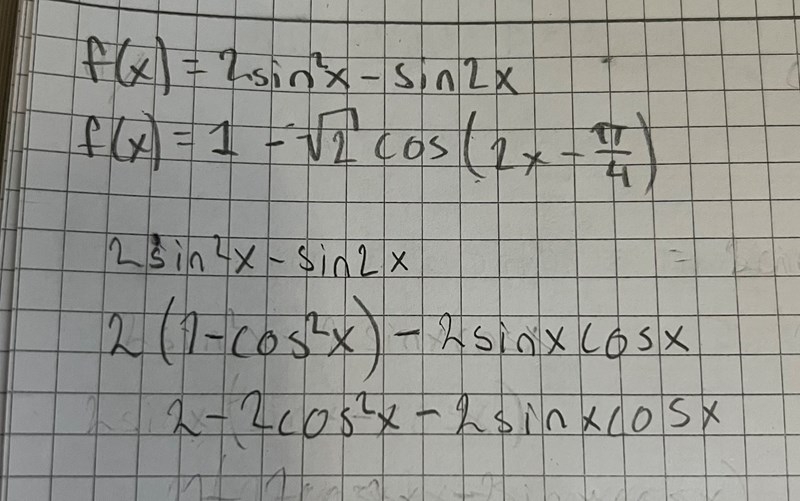 f(x) = 2sin²x - sin2x
f(x) = 1 - √2 cos(2x - π/4)
2sin²x - sin2x
2(1-cos²x) - 2sinxcosx
2 - 2cos²x - 2sinxcosx